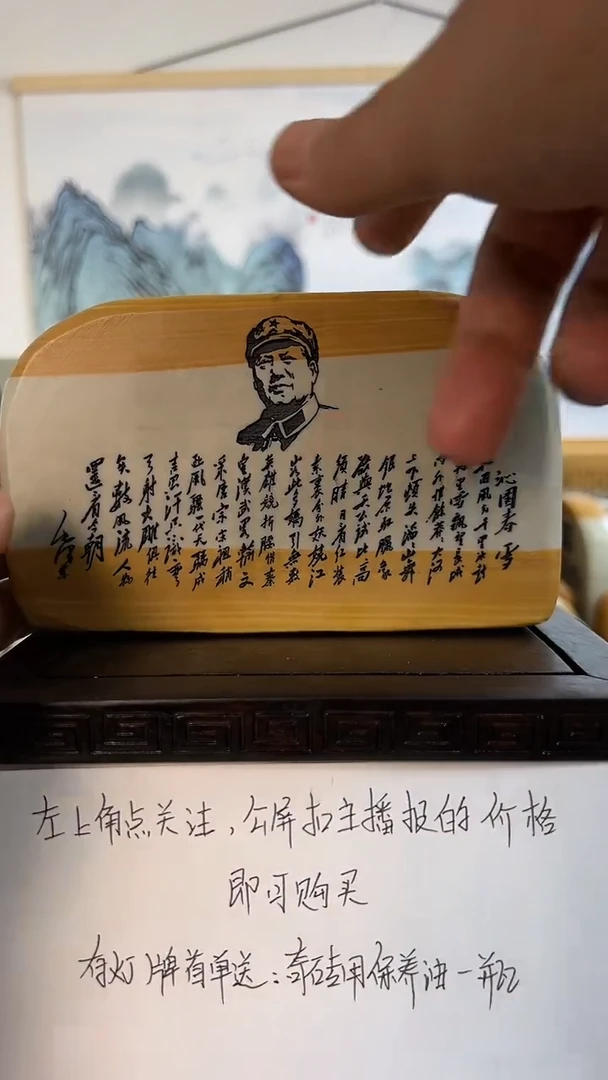 沁園春 雪
里雪飘望长城
内外惟余莽莽大河
上下顿失滔滔山舞
银蛇原驰腊象
欲與天公试比高
须晴日看红装
素裹分外妖娆江
山如此多娇引無数
英雄競折腰惜秦
皇漢武略輸文
采唐宗宋祖稍
逊風騷一代天骄成
吉思汗只識彎
弓射大雕俱往
矣數風流人物
還看今朝
毛泽东
左上角点关注，公屏扣主播报的价格
即可购买
有灯牌首单送：奇石专用保养油一瓶